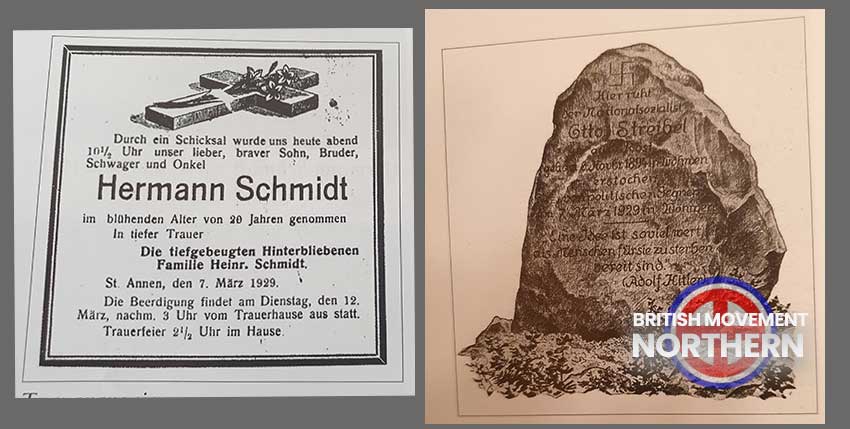 Durch ein Schicksal wurde uns heute abend
10½ Uhr unser lieber, braver Sohn, Bruder,
Schwager und Onkel
Hermann Schmidt
im blühenden Alter von 20 Jahren genommen
In tiefer Trauer
Die tiefgebeugten Hinterbliebenen
Familie Heinr. Schmidt.
St. Annen, den 7. März 1929.
Die Beerdigung findet am Dienstag, den 12.
März, nachm. 3 Uhr vom Trauerhause aus statt.
Trauerfeier 2½ Uhr im Hause.
Hier ruht
der Nationalsozialist
Otto Streibel
1894 in Wöhrden
erstochen
politischen Gegner
März 1929 in
Eine Idee ist soviel wert,
als Menschen für sie zu sterben
bereit sind."
(Adolf Hitler)
BRITISH MOVEMENT
NORTHERN